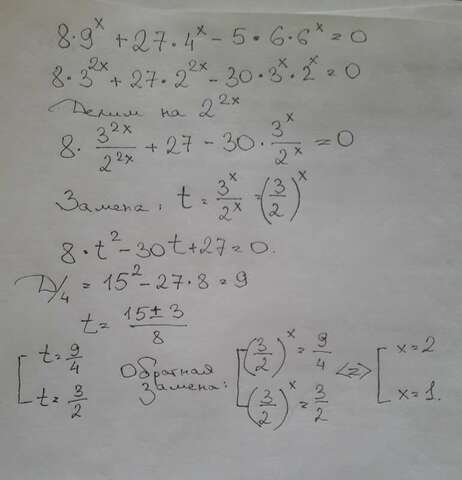 8·9^x + 27·4^x − 5·6·6^x = 0
8·3^{2x} + 27·2^{2x} − 30·3^x·2^x = 0
Делим на 2^{2x}
8·\frac{3^{2x}}{2^{2x}} + 27 − 30·\frac{3^x}{2^x} = 0
Замена: t = \frac{3^x}{2^x} = (\frac{3}{2})^x
8·t^2 − 30t + 27 = 0.
D/4 = 15^2 − 27·8 = 9
t = \frac{15 ± 3}{8}
[ t = \frac{9}{4}
t = \frac{3}{2}
Обратная замена:
[ (\frac{3}{2})^x = \frac{9}{4}
(\frac{3}{2})^x = \frac{3}{2}
<=> [ x = 2
x = 1.